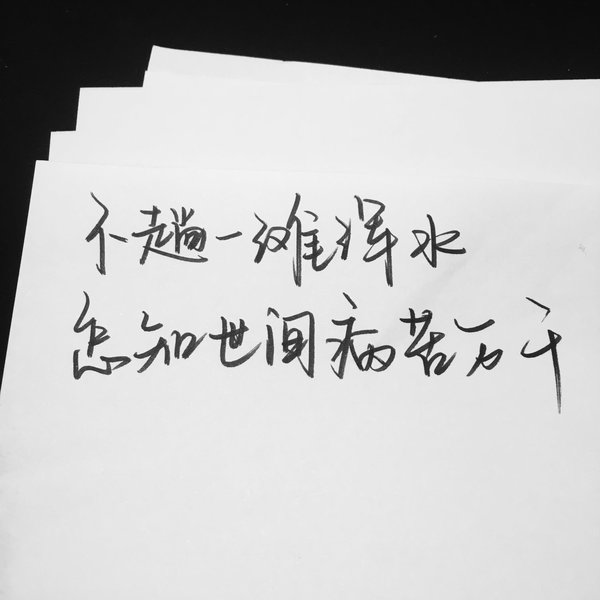 不趟一滩浑水
怎知世间病苦万千